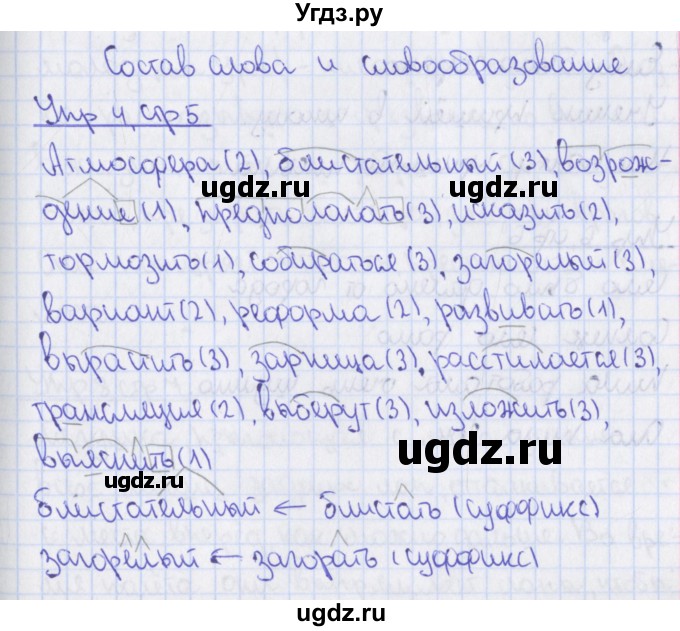 Угдз.ру
Состав слова и словообразование
Упр 4, стр 5
Атмосфера (2), блистательный (3), возрож-
дение (1), предполагать (3), исказить (2),
тормозить (1), собираться (3), загорелый (3),
вариант (2), реформа (2), развивать (1),
вырастить (3), зарница (3), расстилается (3),
трансляция (2), выберут (3), изложить (3),
выяснить (1)
блистательный ← блистать (суффикс)
загорелый ← загорать (суффикс)
ugdz.ru
ugdz.ru
ugdz.ru
ugdz.ru
ugdz.ru
ugdz.ru
ugdz.ru